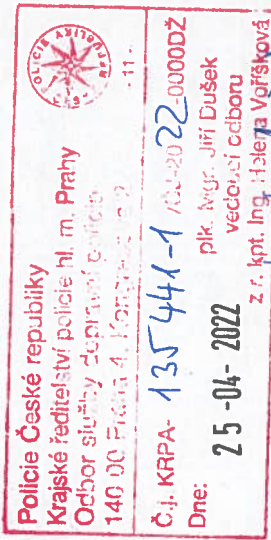 Policie České republiky
Krajské ředitelství policie hl. m. Prahy
Odbor služby dopravní policie
140 00 Praha 4, Kongresová 2
- 11 -
Č.j. KRPA- 135441-1 /ČJ-2022-0000DŽ
plk. Mgr. Jiří Dušek
vedoucí odboru
Dne: 25 -04- 2022
z r. kpt. Ing. Helena Voříšková